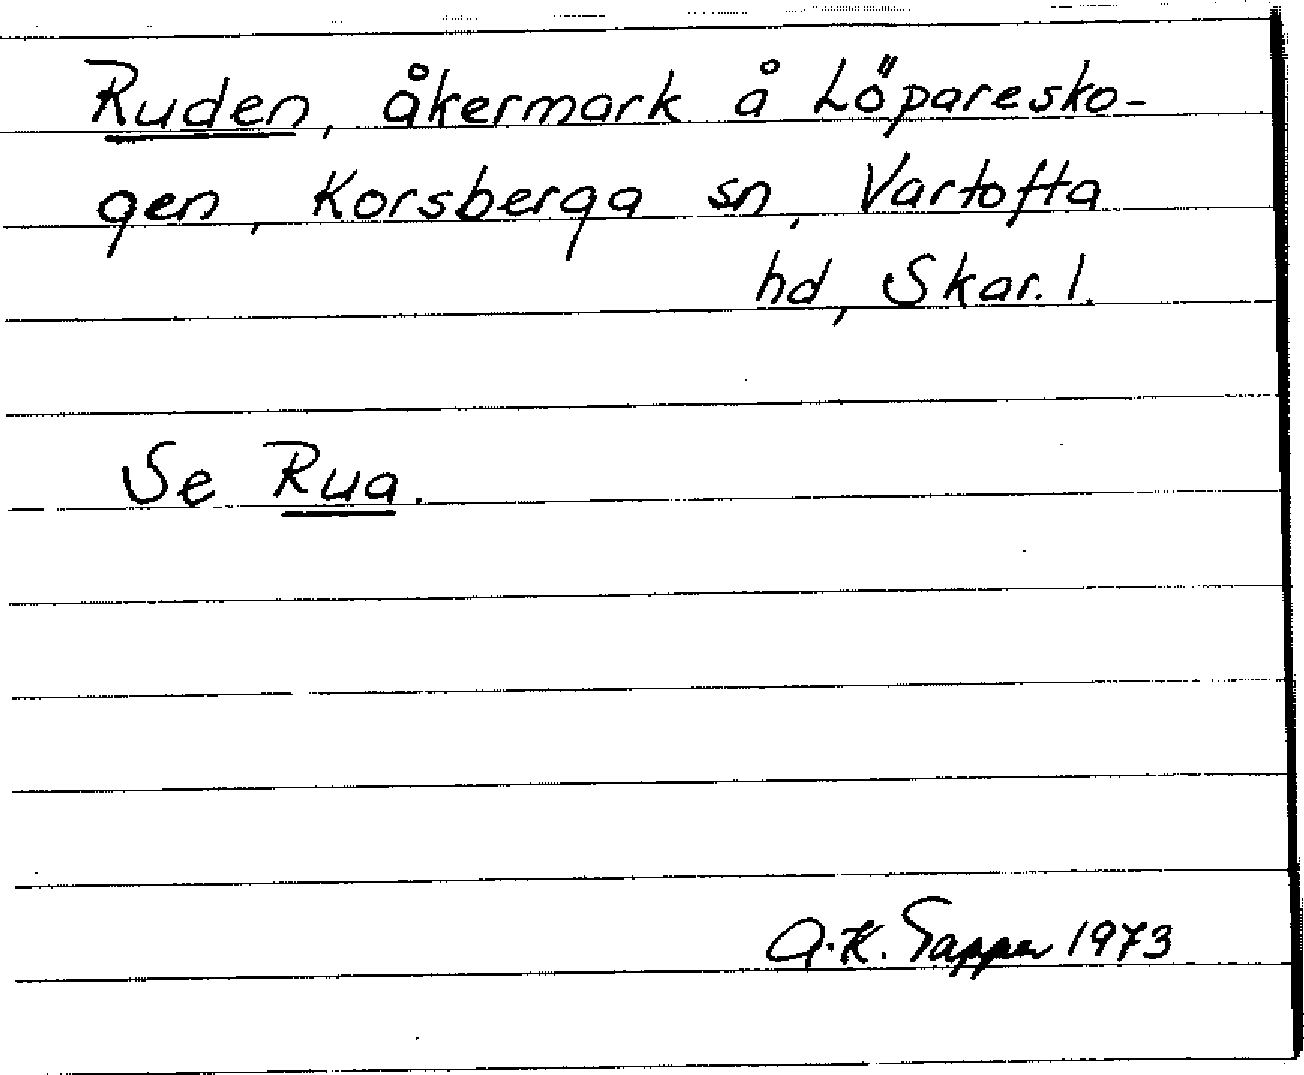 Ruden, åkermark å Löparesko-
gen, Korsberga sn, Vartofta
hd, Skar. l.
Se Rua.
A.-K. Tapper 1973